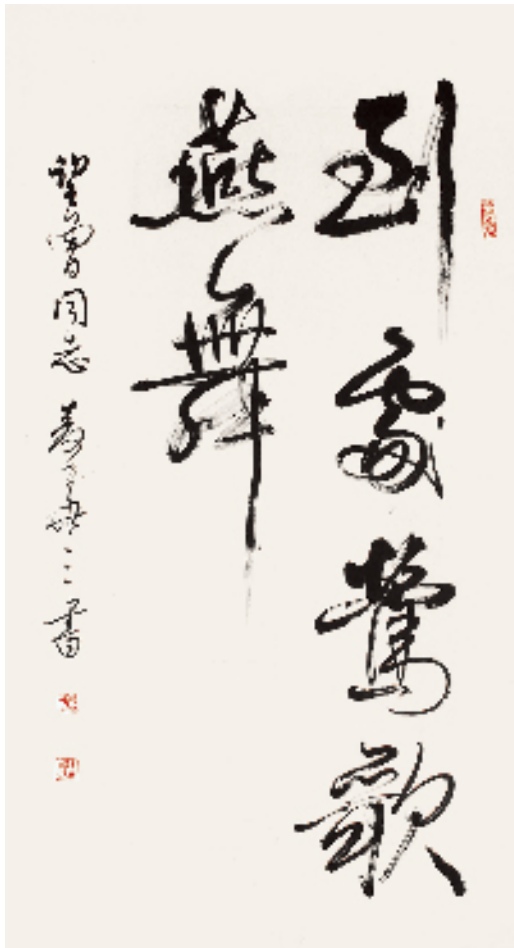 到處鶯歌
燕舞
同志 書